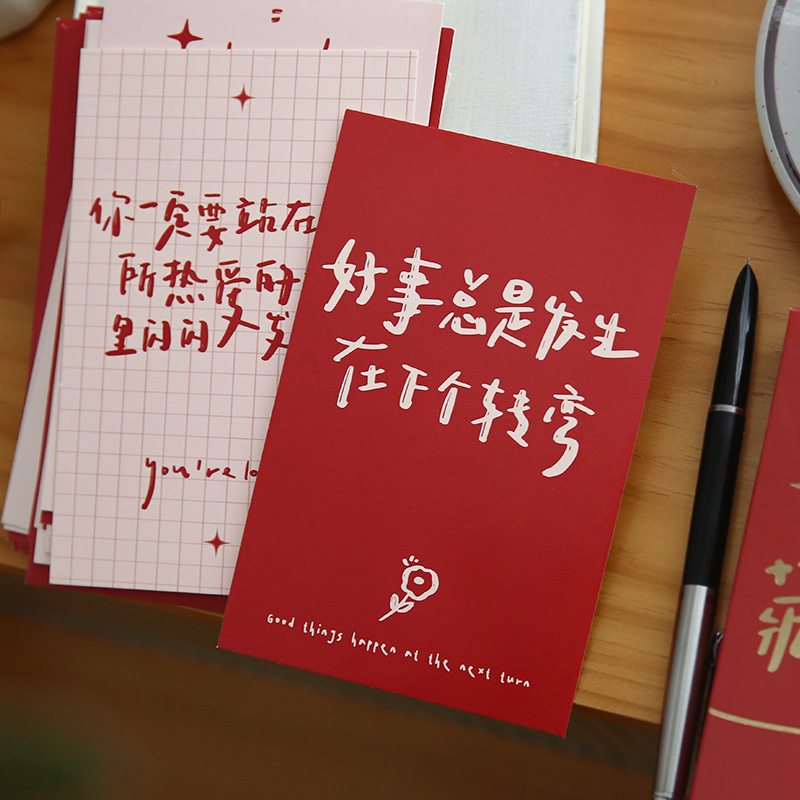 你一定要站在
所热爱的
里闪闪发
you're lo
好事总是发生
在下个转弯
Good things happen at the next turn